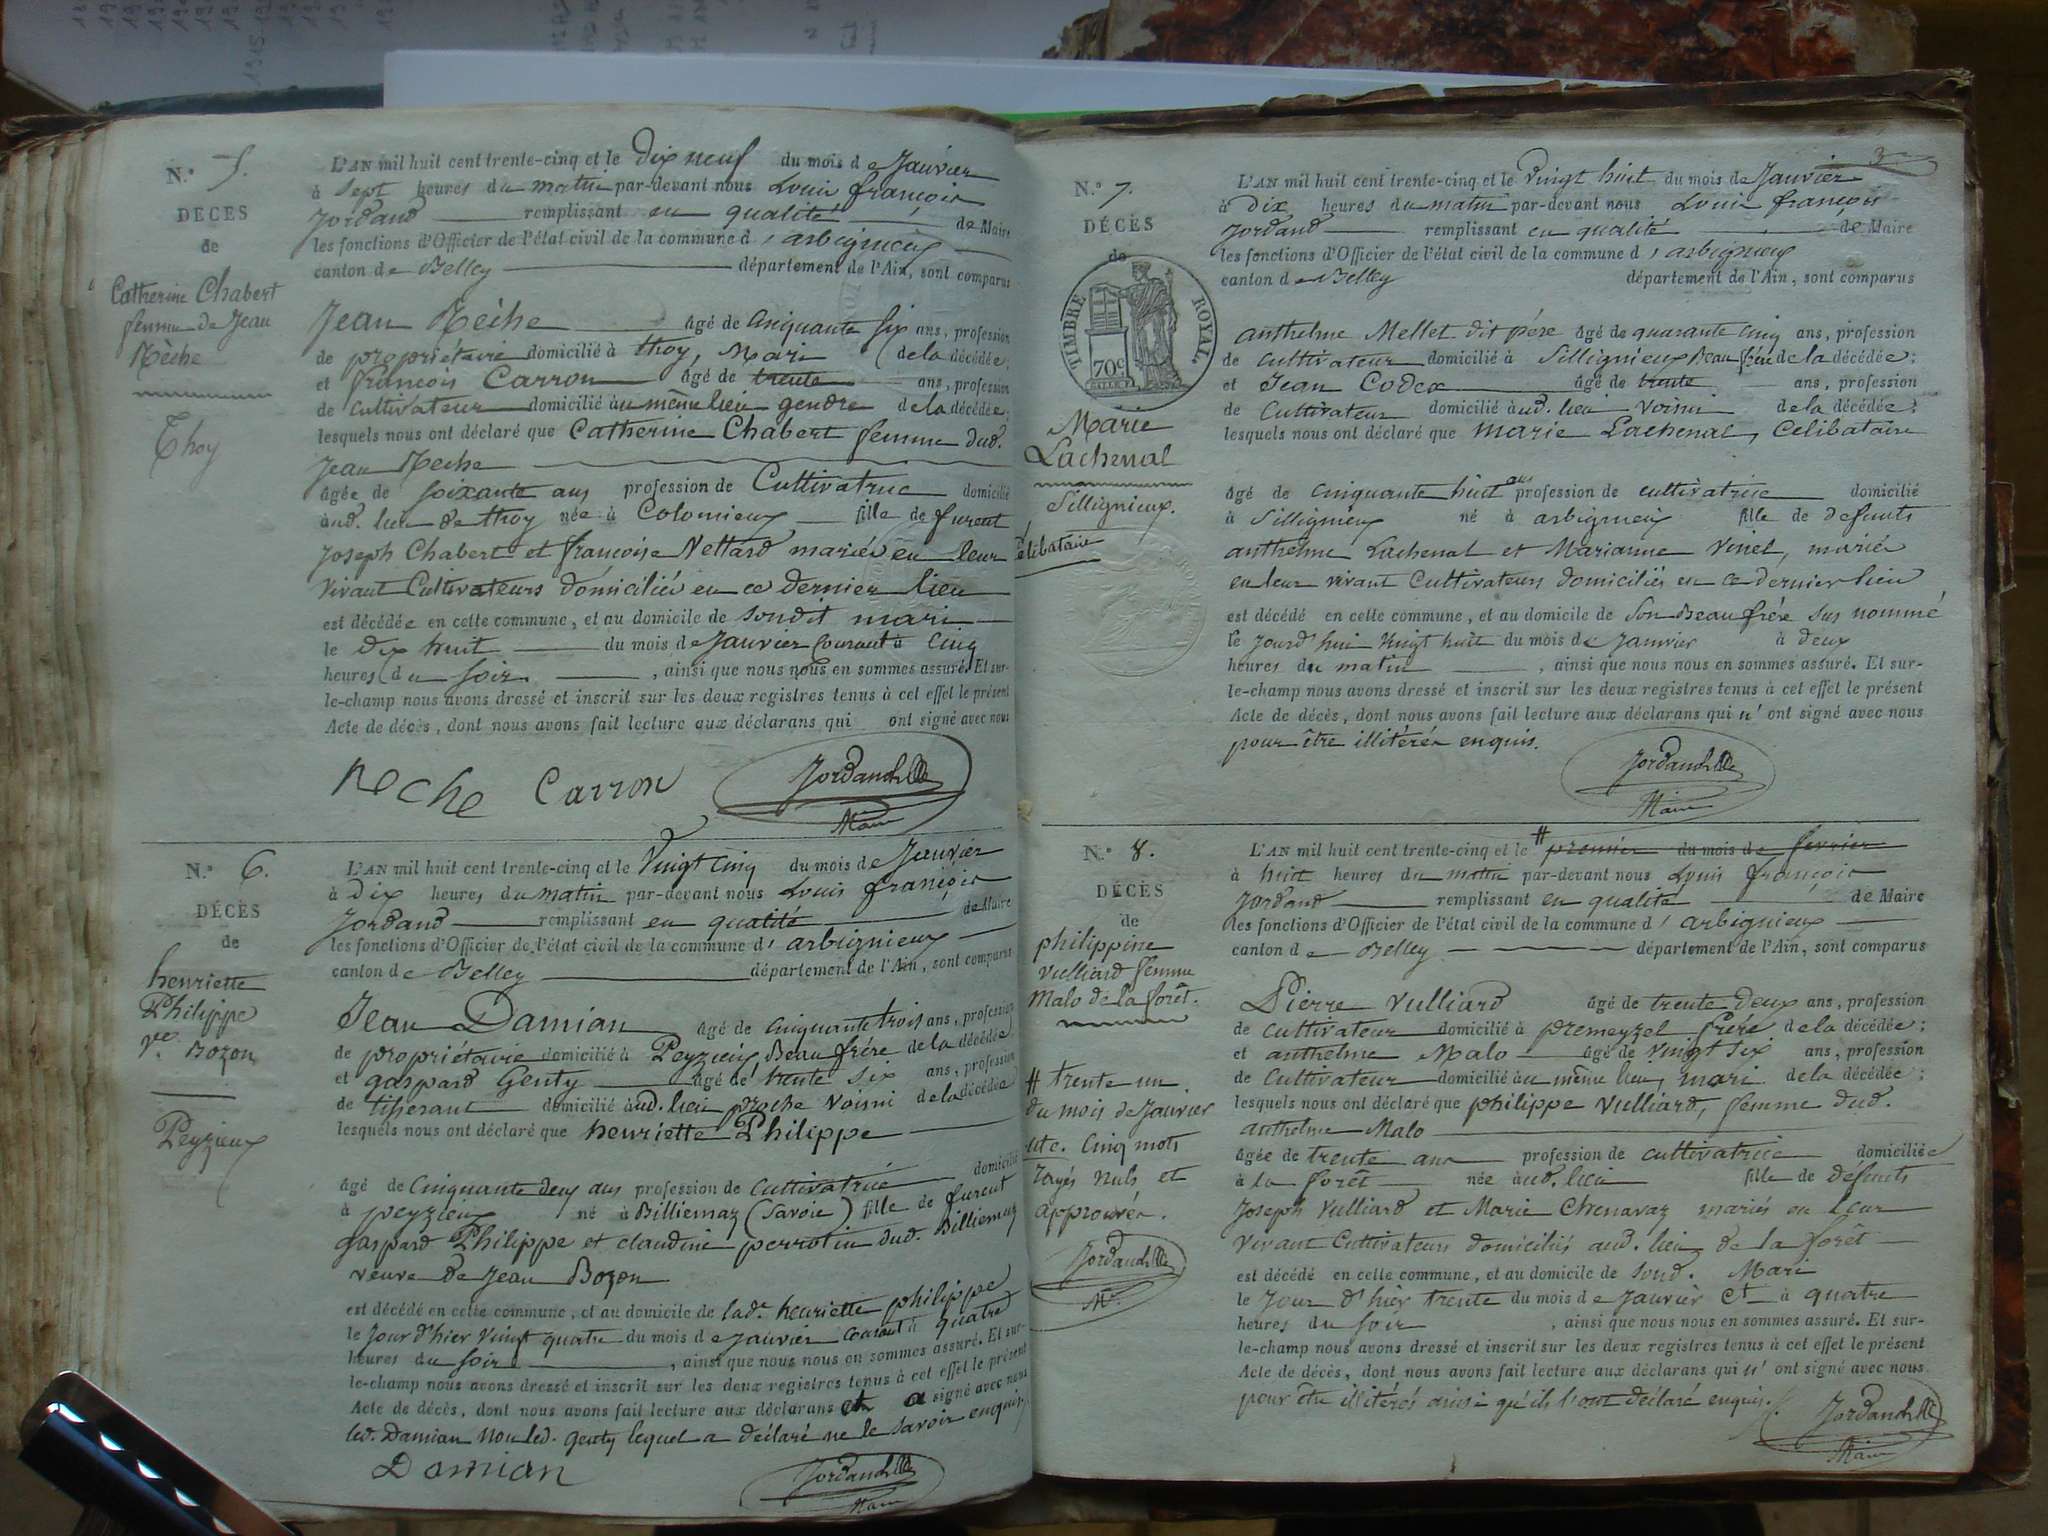 N.° 5.
DÉCÈS
de
Catherine Chabert
femme de Jean
Rèche
Thoy
L'AN mil huit cent trente-cinq et le dix neuf du mois de Janvier
à sept heures du matin par-devant nous Louis françois
Jordand remplissant en qualité de Maire
les fonctions d'Officier de l'état civil de la commune d'arbignieux
canton de Belley département de l'Ain, sont comparus
Jean Rèche âgé de cinquante six ans, profession
de propriétaire domicilié à thoy, Mari de la décédée;
et françois Carron âgé de trente ans, profession
de cultivateur domicilié au même lieu gendre de la décédée;
lesquels nous ont déclaré que Catherine Chabert femme dud.
Jean Reche
âgée de soixante ans profession de Cultivatrice domicilié
aud. lieu de thoy née à Colomieux fille de furent
Joseph Chabert et françoise Nettard mariés en leur
vivant Cultivateurs domiciliés en ce dernier lieu
est décédée en cette commune, et au domicile de sondit mari
le dix huit du mois de Janvier courant à cinq
heures du soir, ainsi que nous nous en sommes assuré. Et sur-
le-champ nous avons dressé et inscrit sur les deux registres tenus à cet effet le présent
Acte de décès, dont nous avons fait lecture aux déclarans qui ont signé avec nous
Reche Carron Jordand
Maire
N.° 6.
DÉCÈS
de
henriette
Philippe
ve Bozon
Peyzieux
L'AN mil huit cent trente-cinq et le Vingt cinq du mois de Janvier
à dix heures du matin par-devant nous Louis françois
Jordand remplissant en qualité de Maire
les fonctions d'Officier de l'état civil de la commune d'arbignieux
canton de Belley département de l'Ain, sont comparus
Jean Damian âgé de cinquante trois ans, profession
de propriétaire domicilié à Peyzieux Beau frère de la décédée
et gaspard Genty âgé de trente six ans, profession
de tisserant domicilié aud. lieu proche voisin de la décédée
lesquels nous ont déclaré que henriette Philippe
âgé de Cinquante deux ans profession de cultivatrice domicilié
à peyzieux né à Billiemaz (Savoie) fille de furent
gaspard Philippe et claudine perrotin dud. Billiemaz
veuve de Jean Bozon
est décédé en cette commune, et au domicile de lade. henriette philippe
le Jour d'hier vingt quatre du mois de Janvier courant à quatre
heures du soir, ainsi que nous nous en sommes assuré. Et sur-
le-champ nous avons dressé et inscrit sur les deux registres tenus à cet effet le présent
Acte de décès, dont nous avons fait lecture aux déclarans et a signé avec nous
led. Damian non led. genty lequel a déclaré ne le savoir enquis.
Damian Jordand
Maire
3
N.° 7.
DÉCÈS
de
TIMBRE ROYAL
70c
Marie
Lachenal
Sillignieux.
Célibataire
L'AN mil huit cent trente-cinq et le vingt huit du mois de Janvier
à dix heures du matin par-devant nous Louis françois
Jordand remplissant en qualité de Maire
les fonctions d'Officier de l'état civil de la commune d'arbignieux
canton de Belley département de l'Ain, sont comparus
anthelme Mellet dit père âgé de quarante cinq ans, profession
de cultivateur domicilié à Sillignieux Beau frère de la décédée;
et Jean Codex âgé de trente ans, profession
de Cultivateur domicilié aud. lieu voisin de la décédée;
lesquels nous ont déclaré que marie Lachenal, Célibataire
âgé de cinquante huit ans profession de cultivatrice domicilié
à Sillignieux né à arbignieux fille de défunts
anthelme Lachenal et Marianne Vinel, mariés
en leur vivant Cultivateurs domiciliés en ce dernier lieu
est décédé en cette commune, et au domicile de son Beau frère sus nommé
le jourd'hui vingt huit du mois de Janvier à deux
heures du matin, ainsi que nous nous en sommes assuré. Et sur-
le-champ nous avons dressé et inscrit sur les deux registres tenus à cet effet le présent
Acte de décès, dont nous avons fait lecture aux déclarans qui n'ont signé avec nous
pour être illitérés enquis.
Jordand
Maire
N.° 8.
DÉCÈS
de
philippine
vulliard femme
Malo de la forêt.
# trente un
du mois de Janvier
etc. Cinq mots
rayés nuls et
approuvés.
Jordand
Mre.
L'AN mil huit cent trente-cinq et le # premier du mois de fevrier
à huit heures du matin par-devant nous Louis françois
Jordand remplissant en qualité de Maire
les fonctions d'Officier de l'état civil de la commune d'arbignieux
canton de Belley département de l'Ain, sont comparus
Pierre Vulliard âgé de trente deux ans, profession
de cultivateur domicilié à premeyzel frère de la décédée;
et anthelme Malo âgé de vingt six ans, profession
de Cultivateur domicilié au même lieu, mari de la décédée;
lesquels nous ont déclaré que philippe Vulliard, femme dud.
anthelme Malo
âgée de trente ans profession de cultivatrice domiciliée
à la forêt née aud. lieu fille de défunts
Joseph Vulliard et Marie Chenavaz mariés en leur
vivant Cultivateurs domiciliés aud. lieu de la forêt
est décédé en cette commune, et au domicile de sond. Mari
le Jour d'hier trente du mois de Janvier et à quatre
heures du soir, ainsi que nous nous en sommes assuré. Et sur-
le-champ nous avons dressé et inscrit sur les deux registres tenus à cet effet le présent
Acte de décès, dont nous avons fait lecture aux déclarans qui n'ont signé avec nous
pour être illitérés ainsi qu'ils l'ont déclaré enquis.
Jordand
Maire